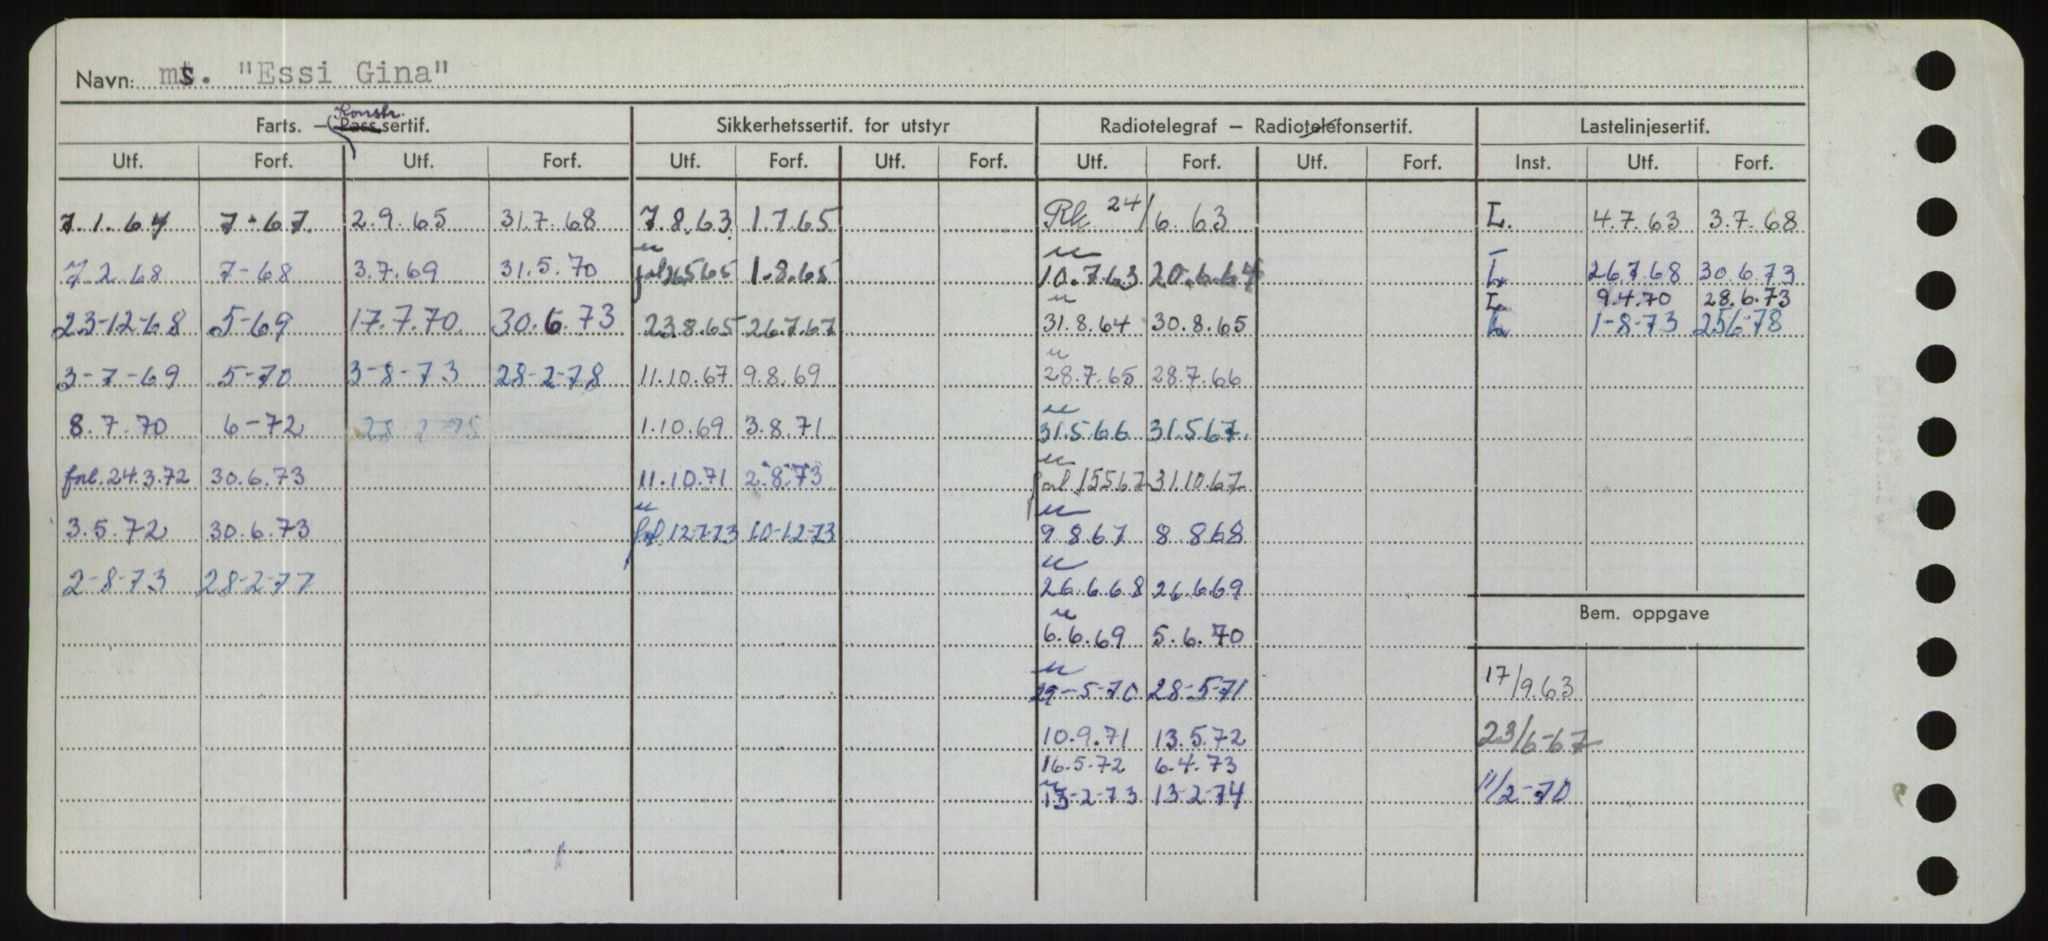 Navn: ms. "Essi Gina"
Konstr.
Farts. – Pass.sertif. Sikkerhetssertif. for utstyr Radiotelegraf – Radiotelefonsertif. Lastelinjesertif.
Utf. Forf. Utf. Forf. Utf. Forf. Utf. Forf. Utf. Forf. Utf. Forf. Inst. Utf. Forf.
7.1.64 7-67 2.9.65 31.7.68 7.8.63 1.7.65 Rk 24/6.63 L. 4.7.63 3.7.68
7.2.68 7-68 3.7.69 31.5.70 forl 26565 1.8.65 10.7.63 20.6.64 L 26.7.68 30.6.73
L. 9.4.70 28.6.73
23-12-68 5-69 17.7.70 30.6.73 23.8.65 26.7.67 31.8.64 30.8.65 L. 1-8-73 256-78
3-7-69 5-70 3-8-73 28-2-78 11.10.67 9.8.69 28.7.65 28.7.66
8.7.70 6-72 28 2-78 1.10.69 3.8.71 31.5.66 31.567.
forl.24.3.72 30.6.73 11.10.71 2.8.73 forl 15567 31.10.67
3.5.72 30.6.73 forl.12-7-73 10-12-73 9.8.67 8.868
2-8-73 28-2-77 26.6.68 26.669
Bem. oppgave
6.6.69 5.6.70
29-5-70 28-5-71 17/9.63
10.9.71 13.5.72 23/6-67
16.5.72 6.4.73
13-2-73 13-2-74 11/2-70